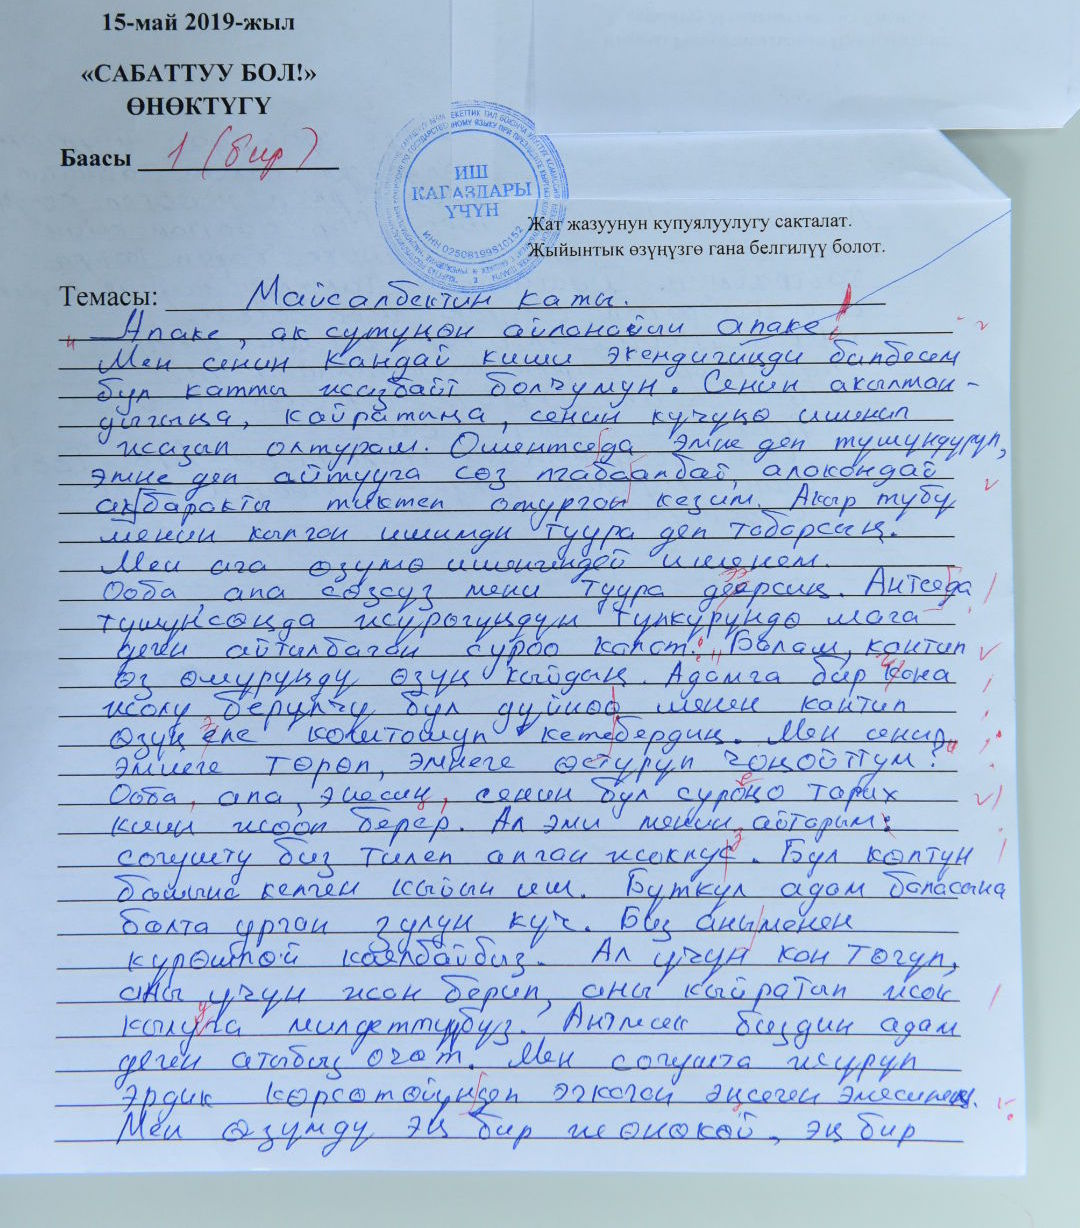 15-май 2019-жыл
«САБАТТУУ БОЛ!»
ӨНӨКТҮГҮ
Баасы 1 (бир)
ИШ
КАГАЗДАРЫ
ҮЧҮН
ИНН 02508199510152
Жат жазуунун купуялуулугу сакталат.
Жыйынтык өзүңүзгө гана белгилүү болот.
Темасы: Майсалбектин каты.
Апаке, ак сүтүңөн айланайын апаке
Мен сенин кандай киши экендигиңди билбесем
бул катты жазбайт болчумун. Сенин акылман-
дыгыңа, кайратыңа, сенин күчүңө ишенип
жазып олтурам. Ошентсе да эмне деп түшүндүрүп,
эмне деп айтууга сөз табаалбай, алакандай
ак баракты тиктеп отурган кезим. Акыр түбү
менин кылган ишимди туура деп табарсың.
Мен ага өзүмө ишенгендей ишенем.
Ооба, апа сөзсүз мени туура дээрсиң. Антседа
түшүнсөңдө жүрөгүңдүн түпкүрүндө мага
деген айтылбаган суроо калат: Балам, кантип
өз өмүрүңдү өзүң кыйдың. Адамга бир гана
жолу берилчү бул дүйнөө менен кантип
өзүң эле коштошуп кетебердиң. Мен сени
эмнеге төрөп, эмнеге өстүрүп чоңойттум?
Ооба, апа, энесиң, сенин бул суроңо тарых
кийин жооп берер. Ал эми менин айтарым:
согушту биз тилеп алган жокпуз. Бул көптүн
башына келген кыйын иш. Бүткүл адам баласына
балта урган зулум күч. Биз аны менен
күрөшпөй коялбайбыз. Ал үчүн кан төгүп,
аны үчүн жан берип, аны кыйратып жок
кылууга милдеттүүбүз. Антпесек биздин адам
деген атыбыз өчөт. Мен согушта жүрүп
эрдик көрсөтөйүн деп эчкачан эңсеген эмесмин.
Мен өзүмдү эң бир жөнөкөй, эң бир